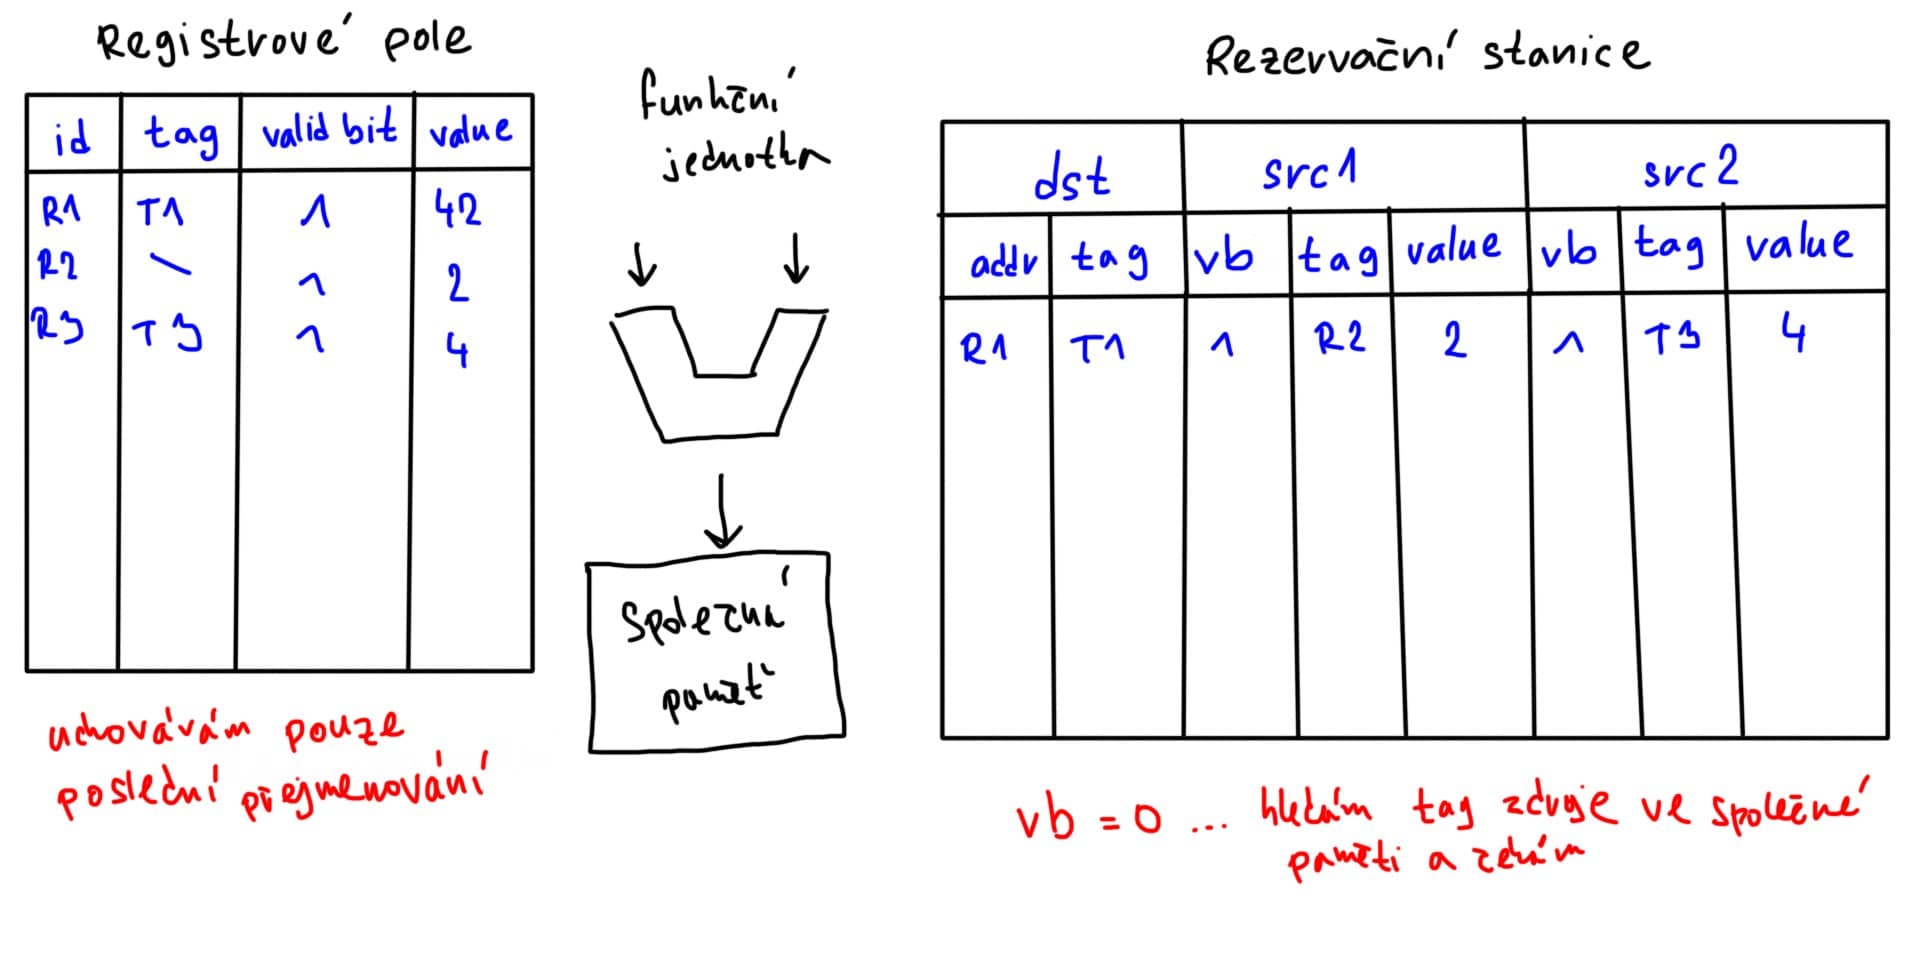 Registrové pole
id tag valid bit value
R1 T1 1 42
R2 \ 1 2
R3 T3 1 4
uchovávám pouze
poslední přejmenování
funkční
jednotka
Společná
paměť
Rezervační stanice
dst src1 src2
addr tag vb tag value vb tag value
R1 T1 1 R2 2 1 T3 4
vb = 0 ... hledám tag zdroje ve společné
paměti a čekám